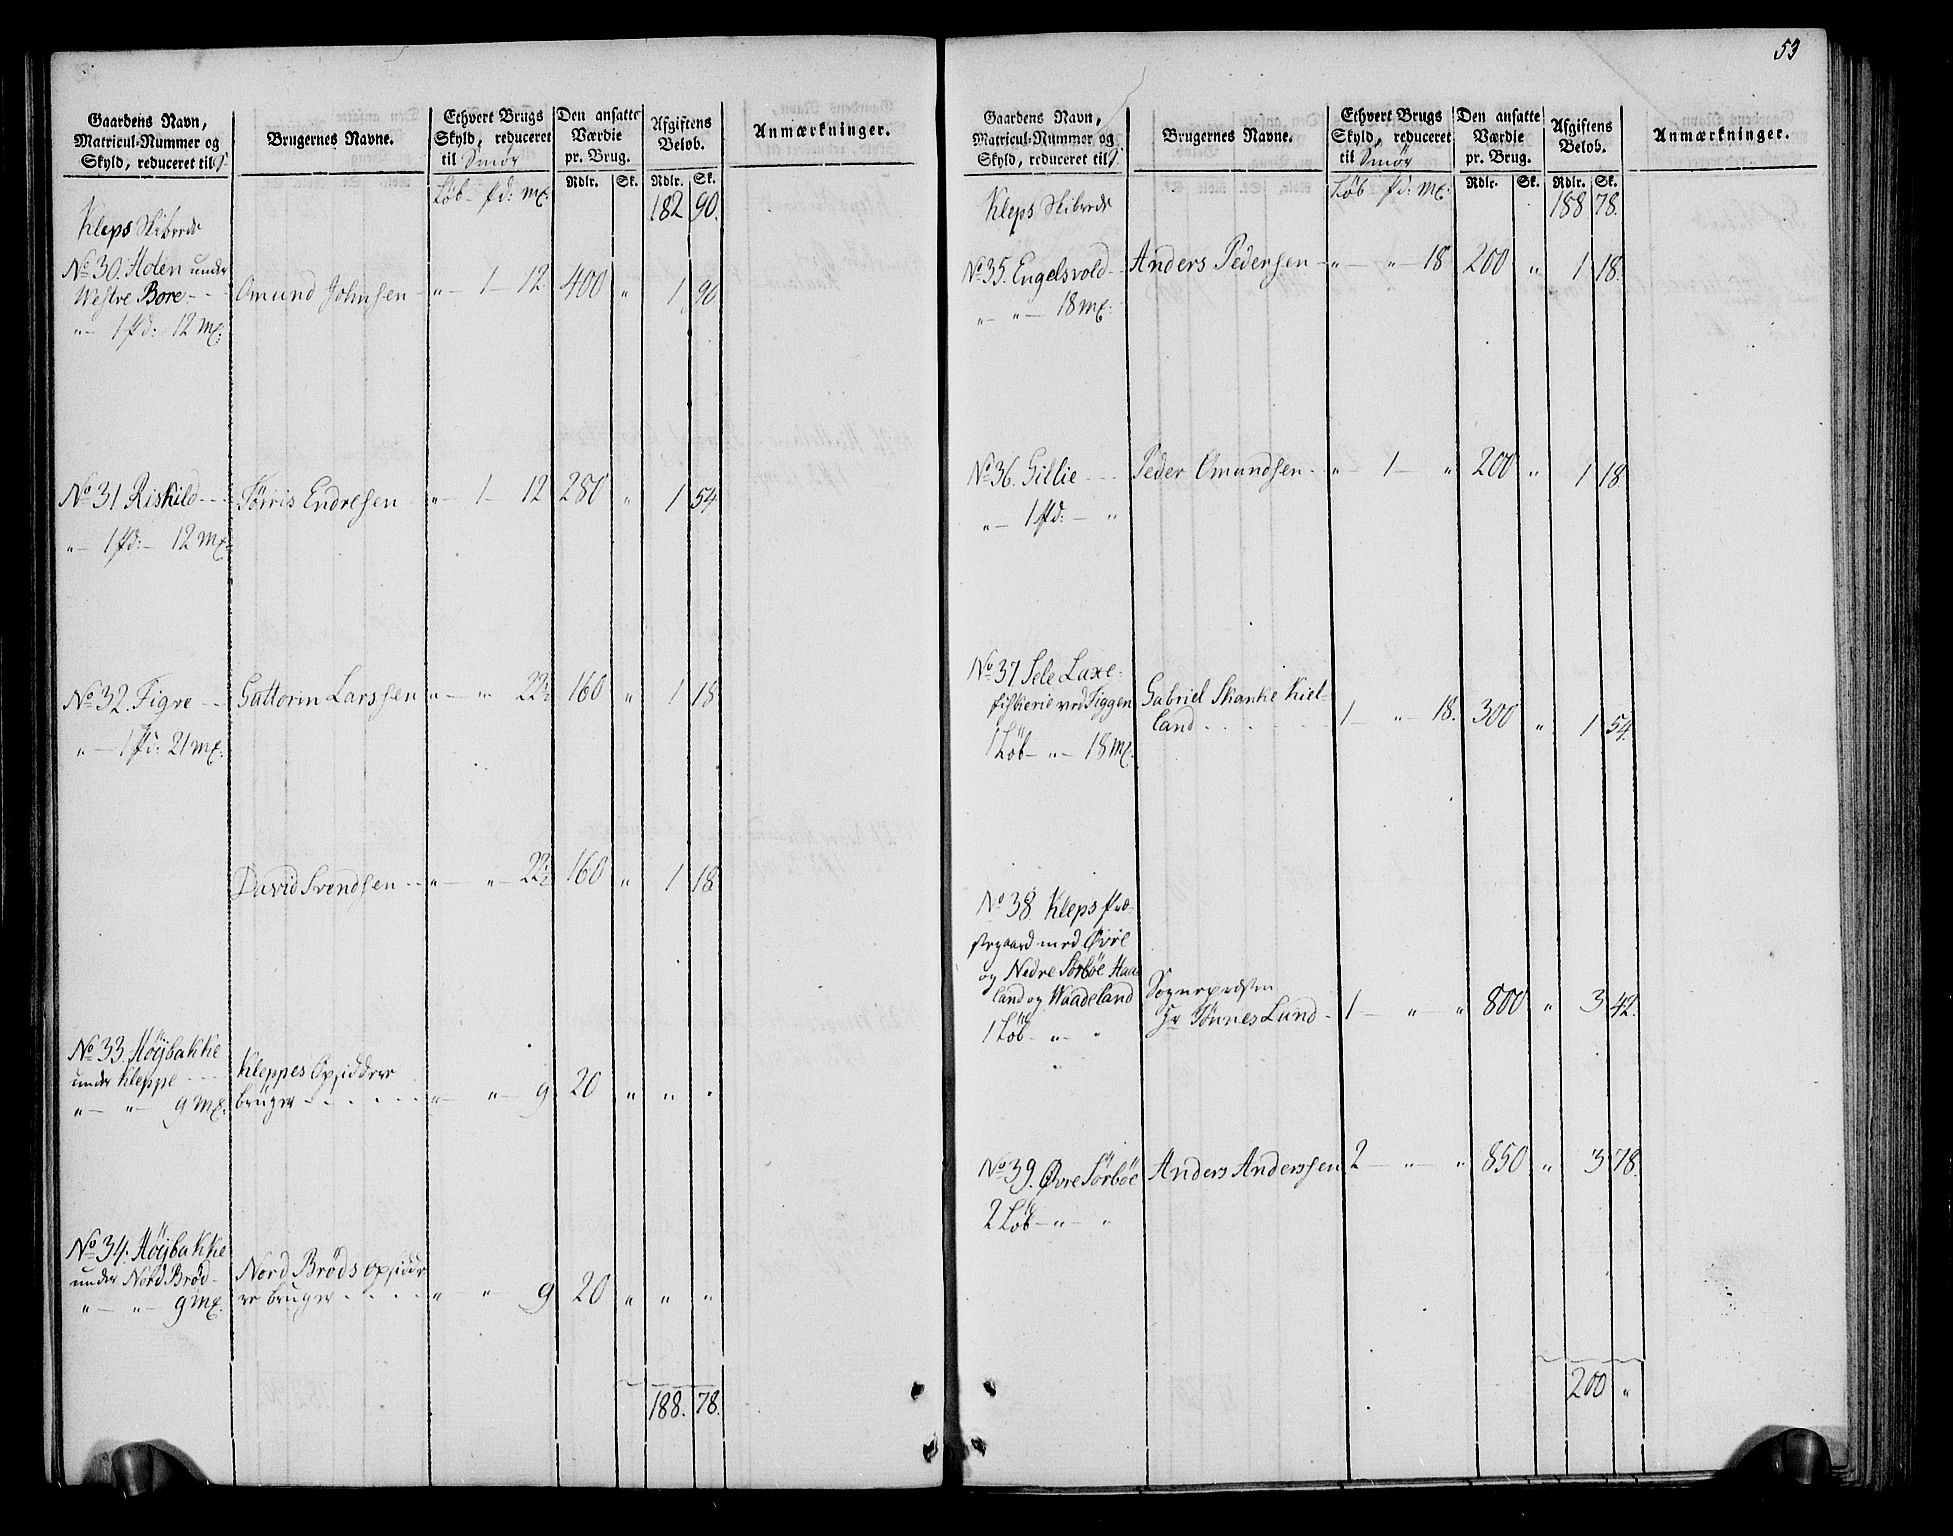 Gaardens Navn,
Matricul-Nummer og
Skyld, reduceret til
Brugernes Navne.
Ethvert Brugs
Skyld, reduceret
til Smör
Den ansatte
Værdie
pr. Brug.
Afgiftens
Beløb.
Anmærkninger.
Rdlr. Sk. Rdlr. Sk.
Löb pd: mk:
Kleps Skibrede 182 90.
No 30. Aden under
Westre Bore Omund Johnsen " 1 12. 400 " 1 90
" 1 pd: 12 mk:
No 31 Riskild Törris Endresen " 1 12 280 " 1 54
" 1 pd: 12 mk:
No 32. Figve Guttorm Larssen " " 22½ 160 " 1 18
" 1 pd: 21 mk:
David Svendsen " " 22½ 160 " 1 18
No 33. Höybakke Kleppes Opsiddere
under Kleppe
" " 9 mk: bruger " " 9 20 " " "
No 34. Höybakke Nord Bröds opsidde
under Nord Bröd re bruger " " 9 20 " " "
" " 9 mk.
188. 78.
53
Gaardens Navn,
Matricul-Nummer og
Skyld, reduceret til
Brugernes Navne.
Ethvert Brugs
Skyld, reduceret
til Smör
Den ansatte
Værdie
pr. Brug.
Afgiftens
Beløb.
Anmærkninger.
Rdlr. Sk. Rdlr. Sk.
Löb pd: mk:
Kleps Skibrede 188 78.
No 35. Engelsvold Anders Pedersen " " 18 200 " 1 18.
" " 18 mk:
No 36. Gillie Peder Omundsen " 1 " 200 " 1 18.
" 1 pd: "
No 37 Sele Laxe-
fiskerie ved Figgen Gabriel Skanke Kiel-
land 1 " 18. 300 " 1 54.
1 Löb " 18 mk.
No 38 Kleps Præ-
stegaard med Øvre
og Nedre Sörböe Haa-
land og Waadeland Sognepræsten
Hr Tönnes Lund 1 " " 800 " 3 42.
1 Löb " "
No 39. Øvre Sörböe Anders Anderssen 2 " " 850 " 3 78.
2 Löb " "
200 "